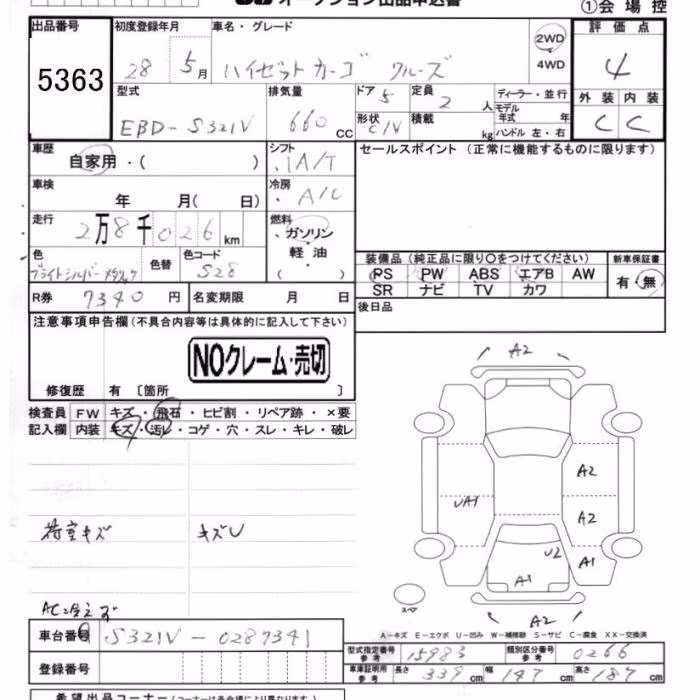 オークション出品申込書
①会場控
出品番号 初度登録年月 車名・グレード 2WD 評価点
5363 28 5月 ハイゼットカーゴ クルーズ 4WD 4
型式 排気量 ドア 5 定員 2 人 ディーラー・並行 外装 内装
EBD-S321V 660 CC 形状 C/V 積載 kg モデル年式 年 ハンドル 左・右 C C
車歴 自家用・( ) シフト IA/T セールスポイント (正常に機能するものに限ります)
車検 年 月( 日) 冷房 A/C
走行 2万8千026km 燃料 ガソリン・軽油・( )
色 ブライトシルバーメタリック 色替 色コード S28
装備品 (純正品に限り○をつけてください) 新車保証書
PS PW ABS エアB AW 有・無
SR ナビ TV カワ
R券 7340 円 名変期限 月 日 後日品
注意事項申告欄(不具合内容等は具体的に記入して下さい)
NOクレーム・売切
修復歴 有 〔箇所 〕
検査員 FW キズ・飛石・ヒビ割・リペア跡・×要
記入欄 内装 キズ・汚レ・コゲ・穴・スレ・キレ・破レ
A2
A2
UA1 A2
荷室キズ キズU
U2 A1
A1
スペア
AC冷えず
A2
A-キズ E-エクボ U-凹み W-補修跡 S-サビ C-腐食 XX-交換済
車台番号 S321V-0287341
型式指定番号 参考 15983 類別区分番号 参考 0266
登録番号
車庫証明用 参考 長さ 339cm 幅 147cm 高さ 187cm
希望出品コーナー